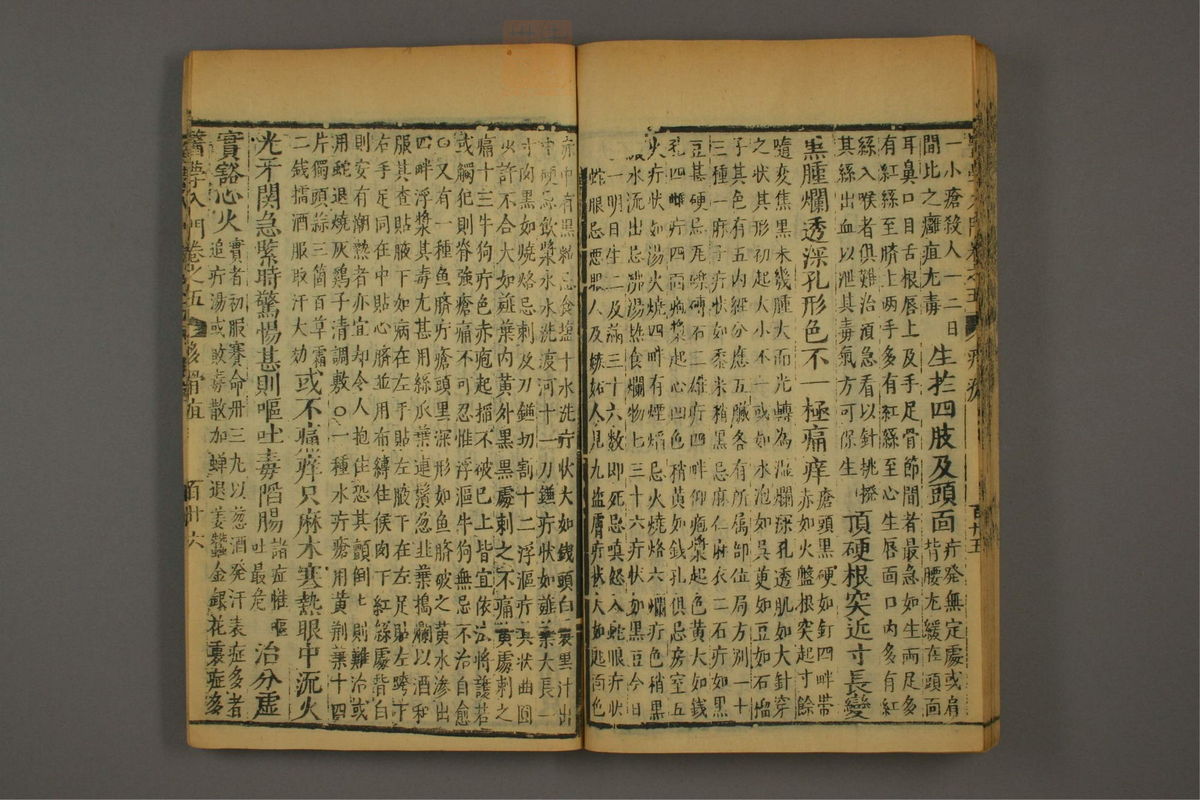 一小瘡殺人一二日
間比之癰疽尤毒 生於四肢及頭面 疔發無定處或肩背腰尤緩在頭面
耳鼻口目舌根唇上及手足骨節間者最急如生兩足多
有紅絲至臍上兩手多有紅絲至心生唇面口內多有紅
絲入喉者俱難治須急看以針挑撥
其絲出血以泄其毒氣方可保生 頂硬根突近寸長變
黑腫爛透深孔形色不一極痛痒 瘡頭黑硬如釘四畔帶赤如火盤根突起寸餘
隨变焦黑未幾腫大而光轉為濕爛深孔透肌如大針穿
之狀其形初起大小不一或如水泡如吳萸如豆如石榴
子其色有五內經分應五臟各有所屬部位局方別一十
三種一麻子疔狀如黍米稍黑忌麻衣二石疔如黑
豆甚硬忌瓦礫磚石三雄疔四畔仰疱漿起色黃大如錢
孔四雌疔四面疱漿起心凹色稍黃如錢孔俱忌房室五
火疔狀如湯火燒四畔有煙焰忌火燒烙六爛疔色稍黑
水流出忌沸湯熱食爛物七三十六疔狀如黑豆今日
一明日生二及滿三十六数即死忌嗔怨八蛇眼疔狀
蛇眼忌惡眼人及嫉妬人見九盐膚疔狀大如匙面色
赤中有黒粒忌食塩十水洗疔狀大如錢頭白裏黒汁出
中硬忌飲漿水水洗渡河十一刀鐮疔狀如薤葉大長一
寸肉黑如燒烙忌刺及刀鐮切割十二浮漚疔其狀曲圓
少許不合大如薤葉內黃外黑黑處刺之不痛黃處刺之
痛十三牛狗疔色赤疱起掐不破已上皆宜依法將護若
或觸犯則脊強瘡痛不可忍惟浮漚牛狗無忌不治自愈
○又有一種魚臍疔瘡頭黑深形如魚臍破之黃水滲出
四畔浮漿其毒尤甚用絲瓜葉連鬚葱韭葉搗爛以酒和
服其查貼腋下如病在左手貼左腋下在左足貼左胯下
右手足同在中貼心臍並用布縛住候肉下紅絲處皆白
則安有潮熱者亦宜却令人抱住恐其顫倒七則難治或
用蛇退燒灰雞子清調敷○一種水疔瘡用黃荆葉十四
片獨頭蒜三箇百草霜
二錢擂酒服取汗大效 或不痛痒只麻木寒熱眼中流火
光牙関急緊時驚惕甚則嘔吐毒陷腸 諸症惟嘔吐最危 治分虛
實豁心火 實者初服奪命丹三九以葱酒発汗表症多者
追疔湯或敗毒散加蟬退姜蠶金銀花裏症多
醫學入門卷之五 百卅六